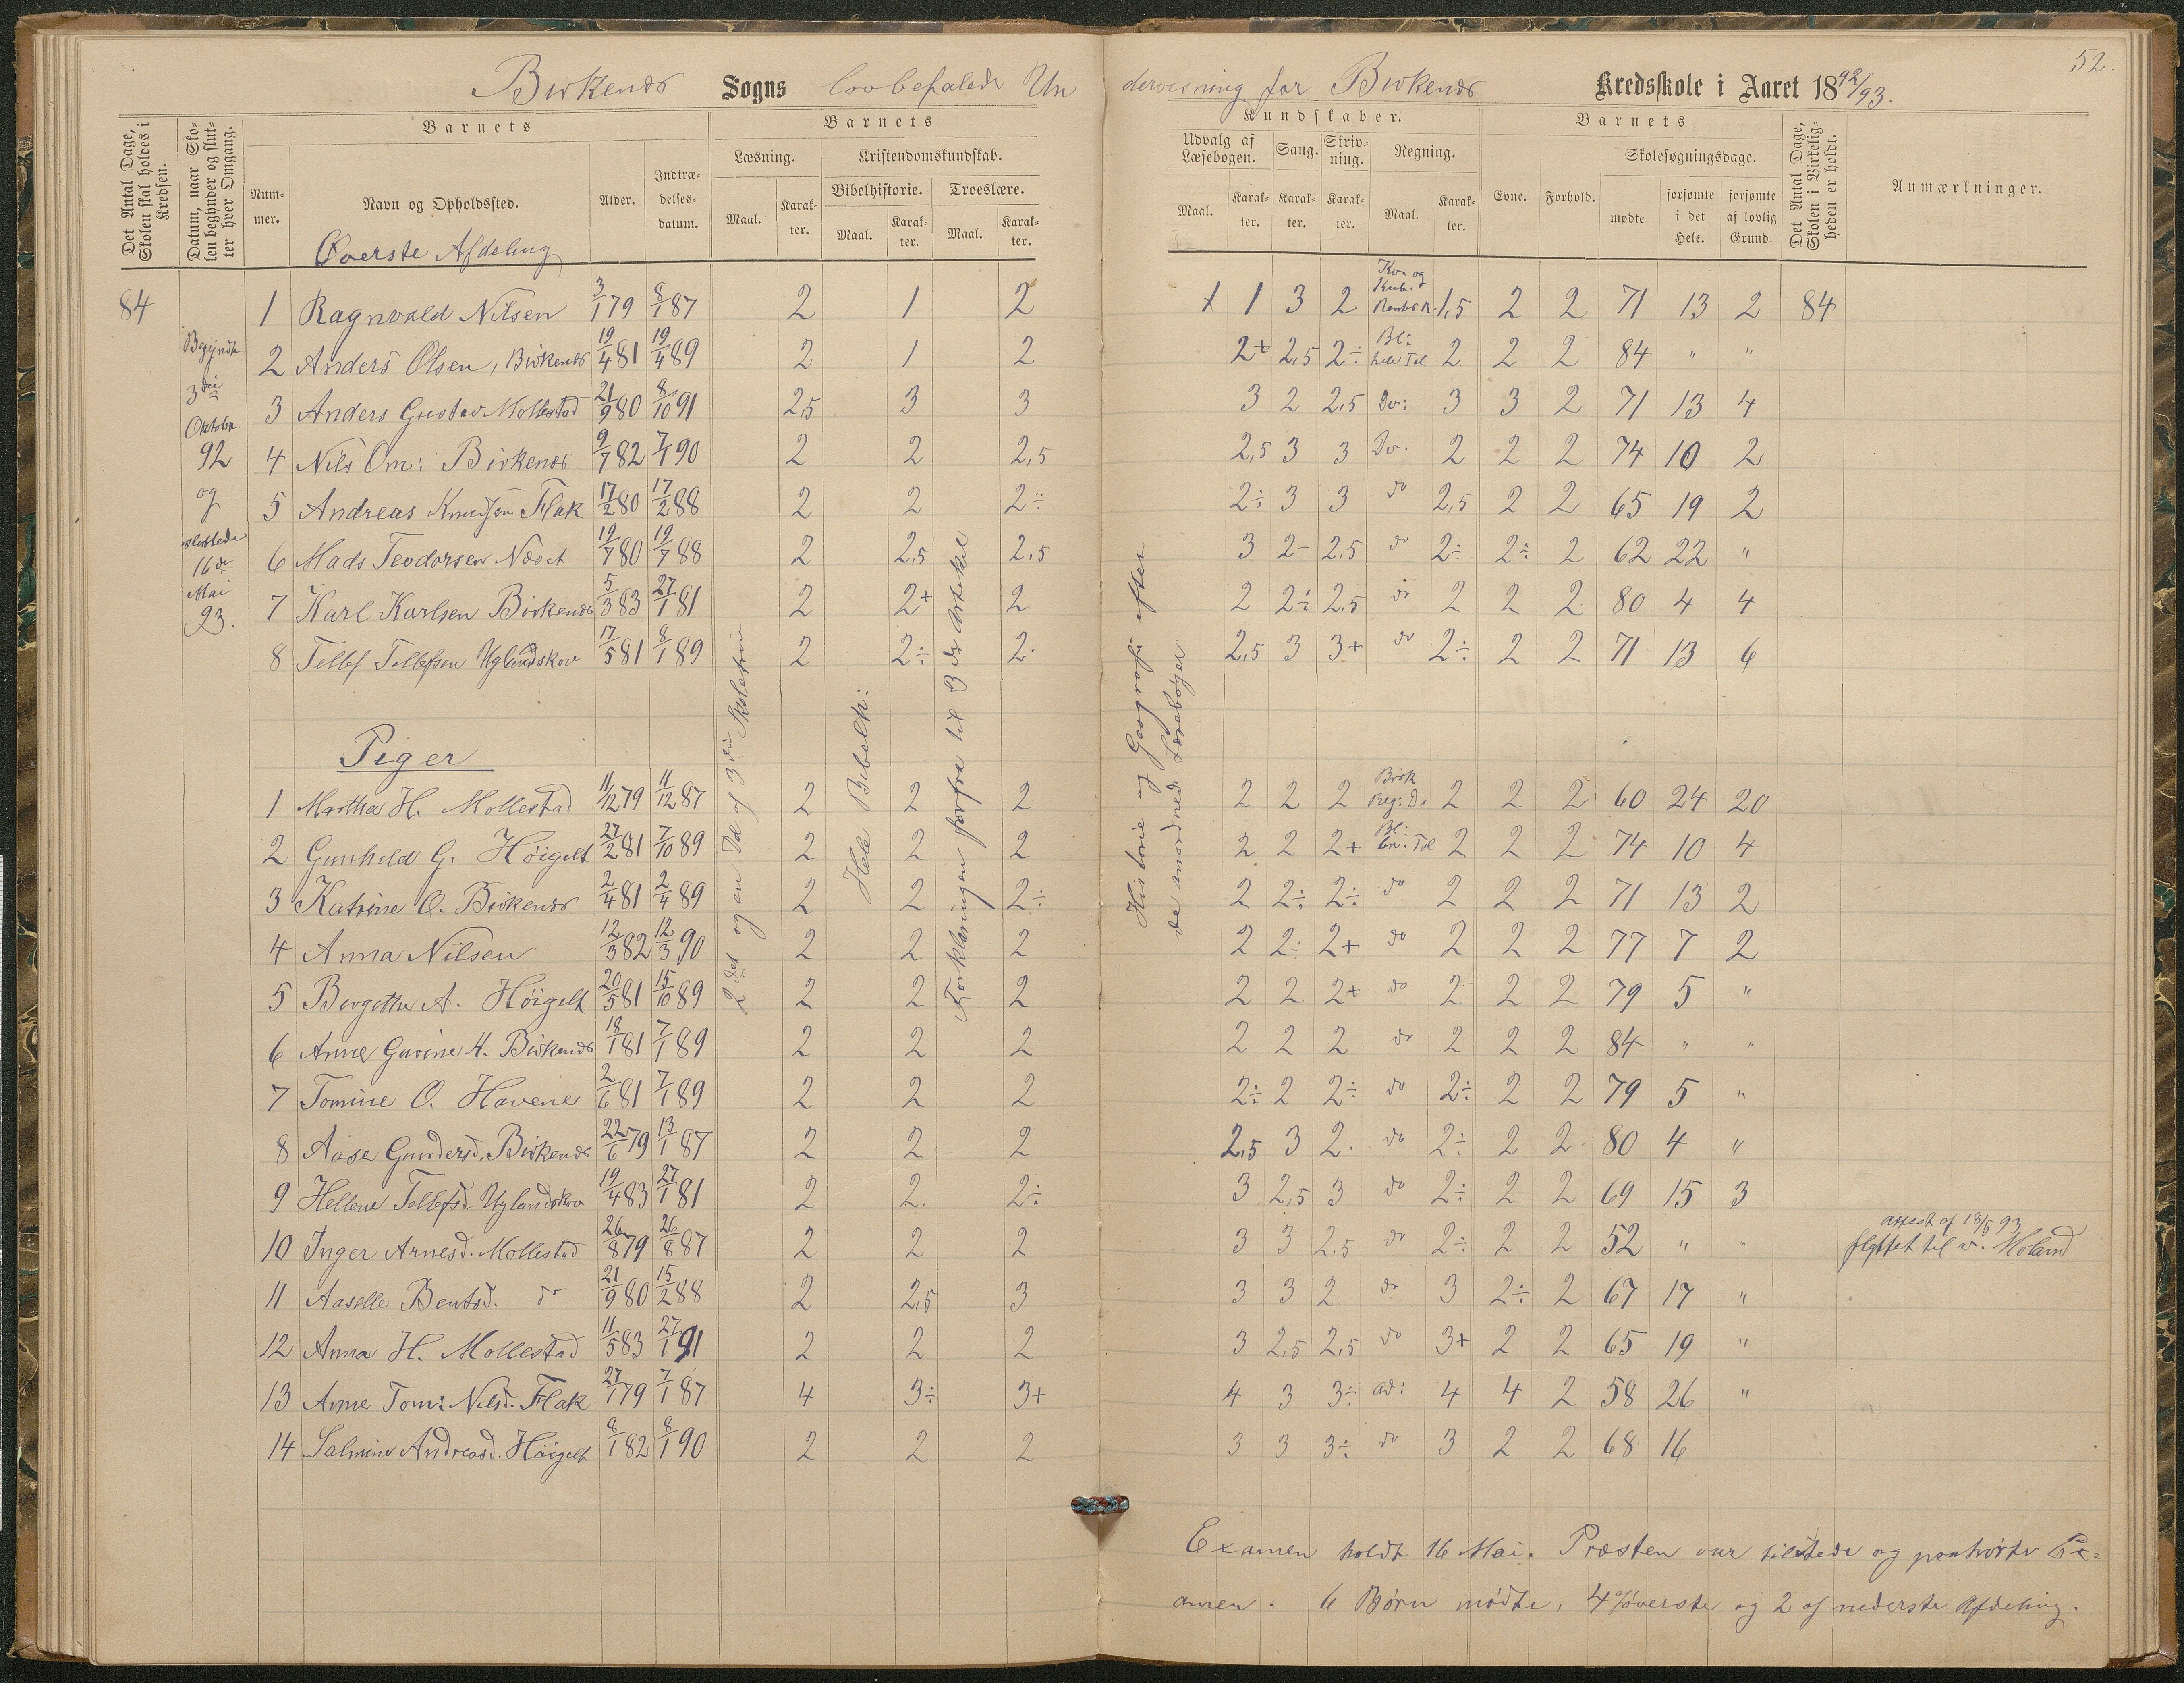 52.
Birkenæs Sogns lovbefalede Un
dervisning for Birkenæs Kredsskole i Aaret 1892/93.
Det Antal Dage, Skolen skal holdes i Kredsen.
Datum, naar Skolen begynder og slutter hver Omgang.
Barnets
Nummer.
Navn og Opholdssted.
Alder.
Indtrædelsesdatum.
Barnets
Læsning.
Maal.
Karakter.
Kristendomskundskab.
Bibelhistorie.
Maal.
Karakter.
Troeslære.
Maal.
Karakter.
Kundskaber.
Udvalg af Læsebogen.
Maal.
Karakter.
Sang.
Karakter.
Skrivning.
Karakter.
Regning.
Maal.
Karakter.
Barnets
Evne.
Forhold.
Skolesøgningsdage.
mødte
forsømte i det Hele.
forsømte af lovlig Grund.
Det Antal Dage, Skolen i Virkeligheden er holdt.
Anmærkninger.
Øverste Afdeling
84
Begyndte
3die
Oktober
92
og
sluttede
16de
Mai
93.
1 Ragnvald Nilsen 3/1 79 8/1 87 2 1 2 1 3 2 1,5 2 2 71 13 2 84
2 Anders Olsen, Birkenæs 19/4 81 19/4 89 2 1 2 2+ 2,5 2÷ Bl: hele Tal 2 2 2 84 " "
3 Anders Gustav Mollestad 21/9 80 8/10 91 2,5 3 3 3 2 2,5 Do: 3 3 2 71 13 4
4 Nils Om: Birkenæs 9/7 82 7/1 90 2 2 2,5 2,5 3 3 Do. 2 2 2 74 10 2
5 Andreas Knudsen Flak 17/2 80 17/2 88 2 2 2÷ 2÷ 3 3 do 2,5 2 2 65 19 2
6 Mads Teodorsen 19/7 80 19/7 88 2 2,5 2,5 3 2- 2,5 do 2÷ 2÷ 2 62 22 "
7 Karl Karlsen Birkenæs 5/3 83 27/1 81 2 2+ 2 2 2÷ 2,5 do 2 2 2 80 4 4
8 Tellef Tellefsen Uglandskov 17/5 81 8/1 89 2 2÷ 2 2,5 3 3+ do 2÷ 2 2 71 13 6
2det og en Del af 3die Skoletrin
Hele Bibelh:
Forklaringen forfra til 3de Artikel
Historie og Geografi efter
de anordnede Lærebøger
Piger
1 Martha H. Mollestad 11/12 79 11/12 87 2 2 2 2 2 2 Brøk Reg: D. 2 2 2 60 24 20
2 Gunhild G. Høigelt 27/2 81 7/10 89 2 2 2 2 2 2+ Bl: en. Tal 2 2 2 74 10 4
3 Katrine O. Birkenæs 2/4 81 2/4 89 2 2 2÷ 2 2÷ 2÷ do 2 2 2 71 13 2
4 Anna Nilsen 12/3 82 12/3 90 2 2 2 2 2÷ 2+ do 2 2 2 77 7 2
5 Bergitha A. Høigelt 20/5 81 15/10 89 2 2 2 2 2 2+ do 2 2 2 79 5 "
6 Anne Gurine H. Birkenæs 18/1 81 7/1 89 2 2 2 2 2 2 do 2 2 2 84 " "
7 Tomine O. Havene 2/6 81 7/1 89 2 2 2 2÷ 2 2÷ do 2÷ 2 2 79 5 "
8 Aase Gundersd. Birkenæs 22/6 79 13/1 87 2 2 2 2,5 3 2. do 2÷ 2 2 80 4 "
9 Hellene Tellefsd. Uglandskov 19/4 83 27/1 81 2 2. 2÷ 3 2,5 3 do 2÷ 2 2 69 15 3
10 Inger Arnesd. Mollestad 26/8 79 26/8 87 2 2 2 3 3 2,5 do 2÷ 2 2 52 " " attest af 18/5 93 flyttet til v. Moland
11 Aaselle Bentsd. do 21/9 80 15/2 88 2 2,5 3 3 3 2 do 3 2÷ 2 67 17 "
12 Anna H. Mollestad 11/5 83 27/1 91 2 2 2 3 2,5 2,5 do 3+ 2 2 65 19 "
13 Anne Tom: Nilsd. Flak 27/1 79 7/1 87 4 3÷ 3+ 4 3 3÷ ad: 4 4 2 58 26 "
14 Salmine Andreasd. Høigelt 8/1 82 8/1 90 2 2 2 3 3 3÷ do 3 2 2 68 16
Examen holdt 16 Mai. Præsten var tilstede og paahørte Ex=
amen. 6 Børn mødte, 4 af øverste og 2 af nederste Afdeling.